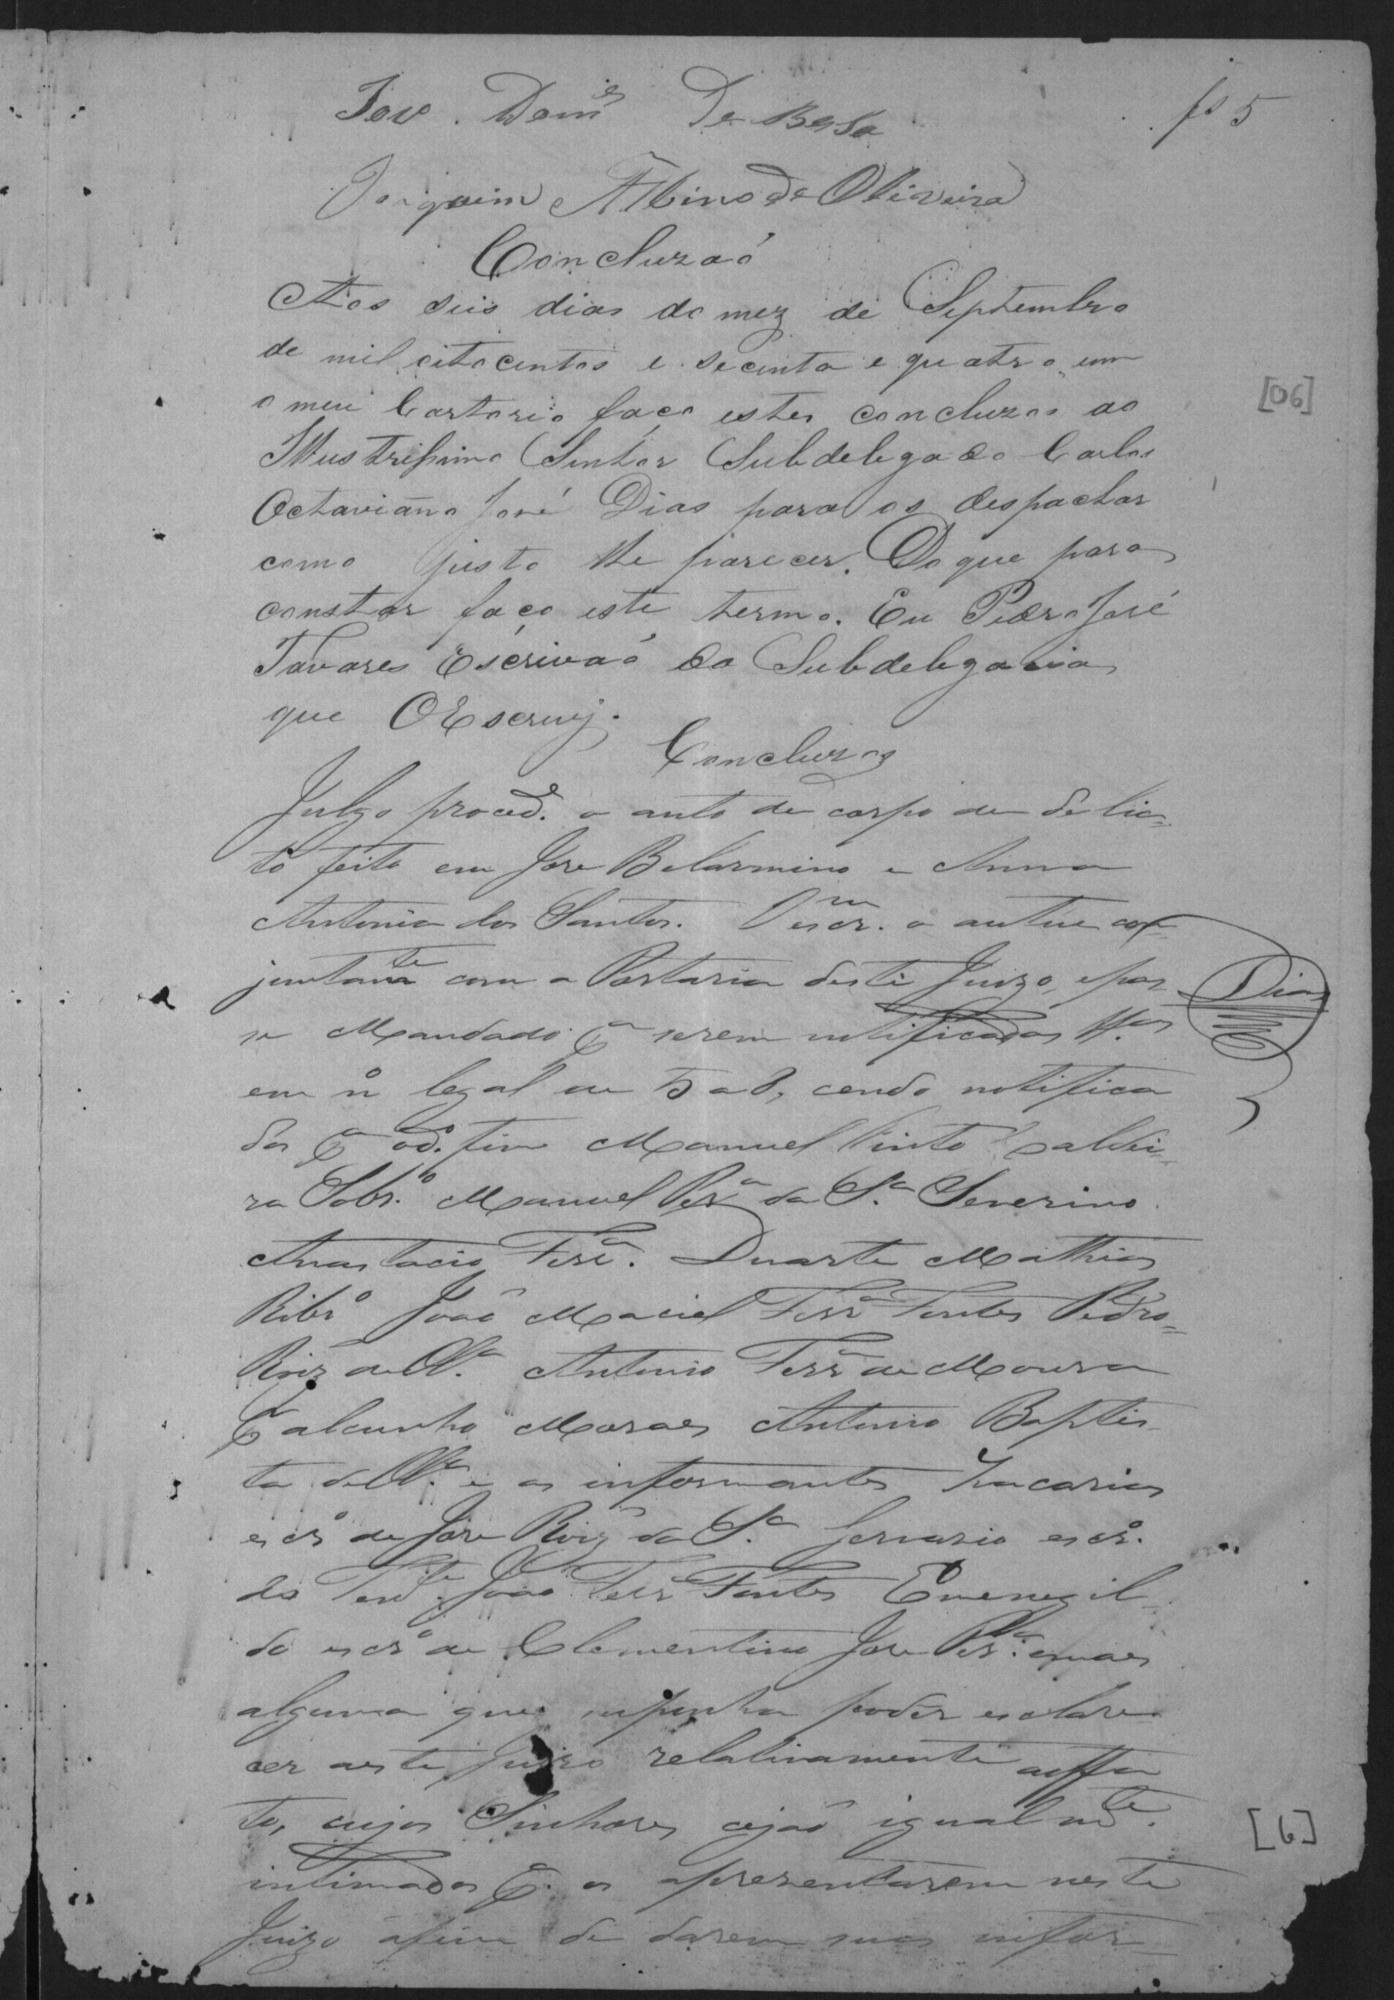 Joze Dom.es De Bessa
fs 5
Joaquim Albino de Oliveira
Concluzaó
Aos seis dias do mez de Septembro
de mil oitocentos e secenta e quatro em
o meu Cartorio faço estes concluzos ao
Illustrissimo Senhor Subdelegado Carlos
Octaviano José Dias para os despachar
como justo lhe parecer. Do que para
constar faço este termo. Eu Pedro José
Tavares Escrivaó da Subdelegacia
que OEscrevj.
Concluzos
Julgo proced.e o auto de corpo de delic-
to feito em Jose Belarmino e Anna
Antonia dos Santos. O escr.m o autue con-
juntam.te com a Portaria deste Juizo, e pas-
se Mandado p.a serem notificadas tt.as
em n.o legal de 5 a 8, cendo notifica
das p.a od.o fim Manuel Pinto Caldei-
ra Sobr.o Manuel Per.a da S.a Severino
Anastacio Ferr.a Duarte Mathias
Ribr.o João Maciel Ferr.a Fontes Pedro
Roiz de Olr.a Antonio Ferr.a de Moura
Moraes Antonio Baptis-
ta de Olr.a e os informantes Zacarias
escr.o de Jose Roiz da S.a Gervazio escr.o
do Ten.te João Ferr.a Fontes Emenegil-
do escr.o de Clementino Jose Per.a e mais
alguma que suponha poder esclare-
cer aeste Juizo relativamente aoffa-
to, cujos Sinhores cejaó igualm.te
intimados p.a os aprezentarem neste
Juizo afim de darem suas infor-
Dias
[06]
[6]